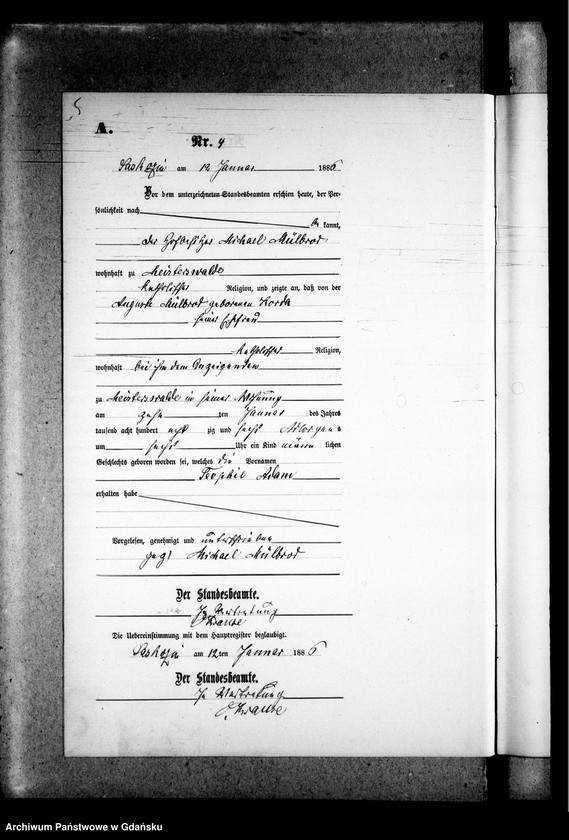 5
A.
Nr. 4
am 12 Januar 1886
Vor dem unterzeichneten Standesbeamten erschien heute, der Per-
sönlichkeit nach
be kannt,
der Hofbesitzer Michael Mülbrod
wohnhaft zu Meisterswalde
katholischer Religion, und zeigte an, daß von der
Auguste Mülbrod geborenen Korda
seiner Ehefrau
katholischer Religion,
wohnhaft bei ihm dem Anzeigenden
zu Meisterswalde in seiner Wohnung
am zehn ten Januar des Jahres
tausend acht hundert acht zig und sechs Morgens
um sechs Uhr ein Kind männ lichen
Geschlechts geboren worden sei, welches die Vornamen
Teophil Adam
erhalten habe
Vorgelesen, genehmigt und unterschrieben
gez. Michael Mülbrod
Der Standesbeamte.
In Vertretung
Krause
Die Uebereinstimmung mit dem Hauptregister beglaubigt.
am 12ten Januar 1886
Der Standesbeamte.
In Vertretung
Krause
Archiwum Państwowe w Gdańsku